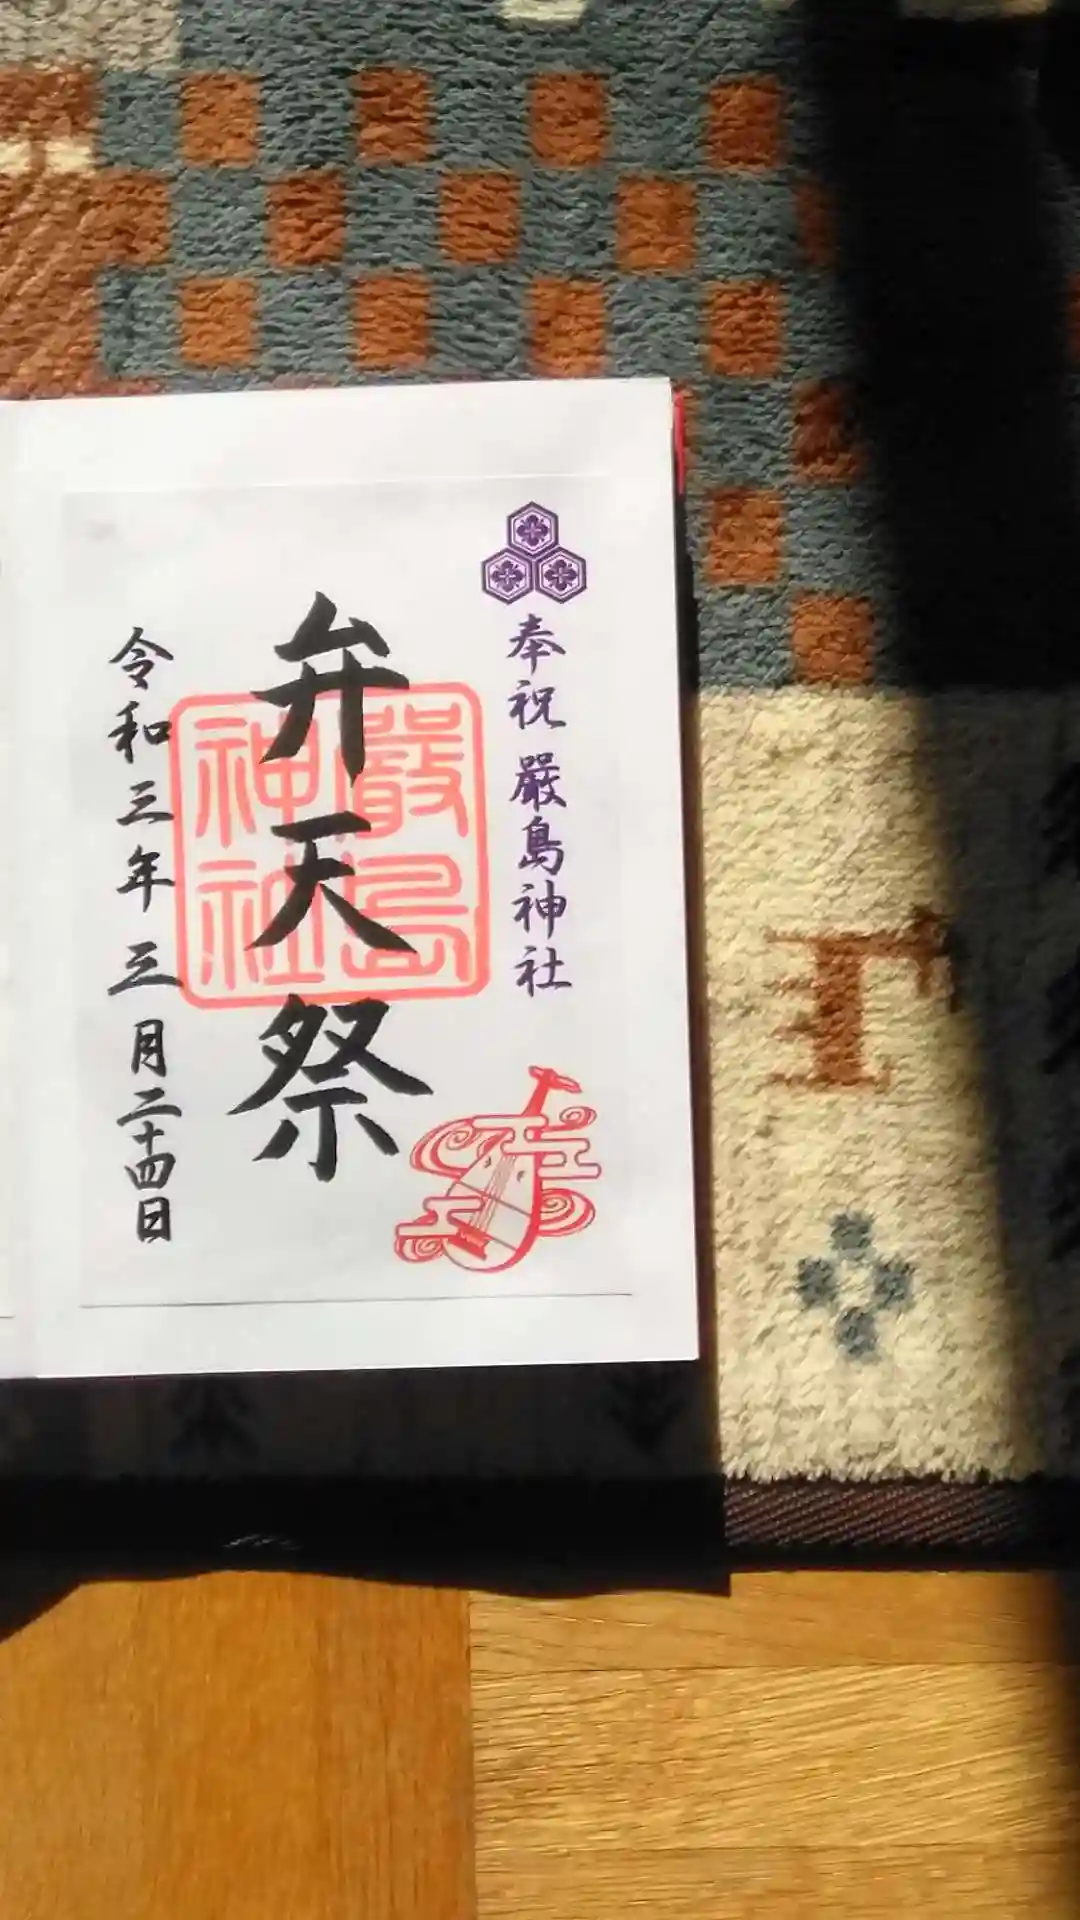 奉祝 嚴島神社
弁天祭
嚴島
神社
令和三年三月二十四日